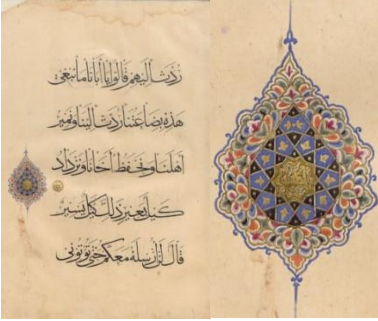 ردت اليهم قالوا يا ابانا ما نبغي
هذه بضاعتنا ردت الينا ونمير
اهلنا ونحفظ اخانا ونزداد
كيل بعير ذلك كيل يسير
قال لن ارسله معكم حتى تؤتوني